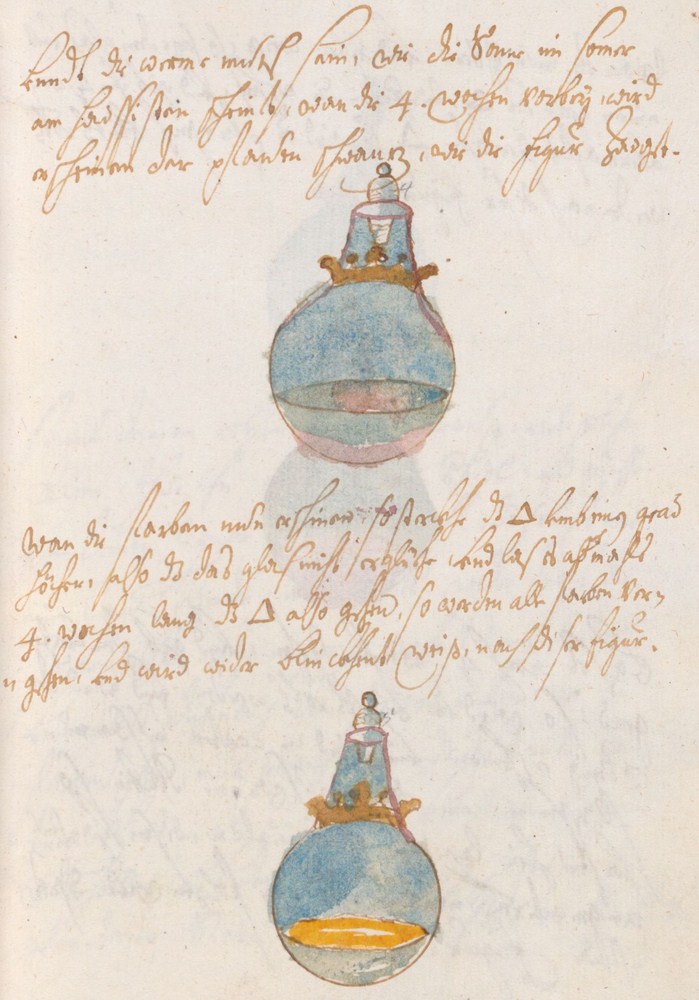 Unndt die werme mueß sein, wie die Sonne im Somer
am heissisten scheinet, wan die 4. wochen vorbey wird
erscheinen der pfauen schwantz, wie die figur
wan die farben nun erschinen, so stercke dz △ umb ein grad
höcher, also dz das glas nicht ergliche, und las es abermahls
4. wochen lang dz △ also gehen, so werden alle farben vor
gehen, und wird wider weiß, nach diser figur.